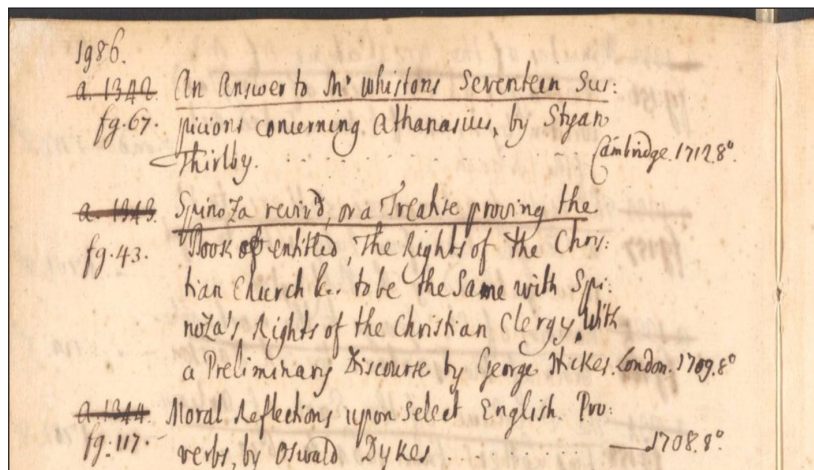 1986.
a. 1342. An Answer to Mr Whistons Seventeen Sus:
fg. 67. picions concerning Athanasius, by Styan
Thirlby. . . . . . . Cambridge. 1712 8o.
a. 1343. Spinoza reviv'd, or a Treatise proving the
fg. 43. Book of entitled, The Rights of the Chris:
tian Church &c. to be the Same with Spi:
noza's Rights of the Christian Clergy, With
a Preliminary Discourse by George Hickes. London. 1709. 8o
a. 1344. Moral Reflections upon Select English Pro:
fg. 117. verbs, by Oswald Dykes . . . . . . . —1708. 8o